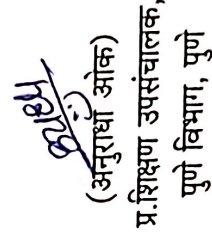 (अनुराधा ओक)
प्र.शिक्षण उपसंचालक,
पुणे विभाग, पुणे